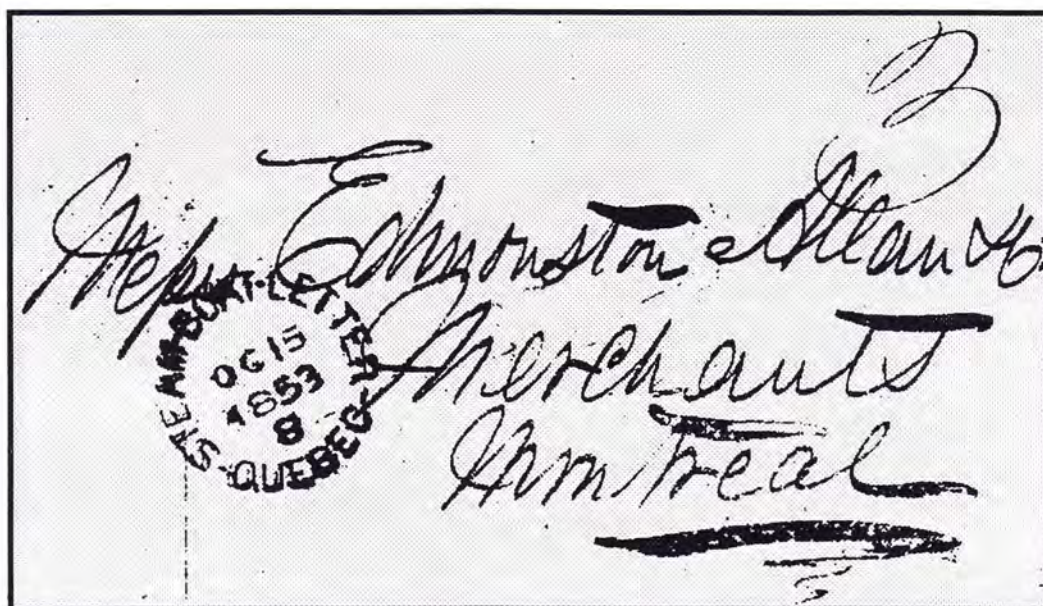 3
Messrs Edmonston Allan & Co.
Merchants
Montreal
STEAM-BOAT-LETTER
OC 15
1853
8
QUEBEC